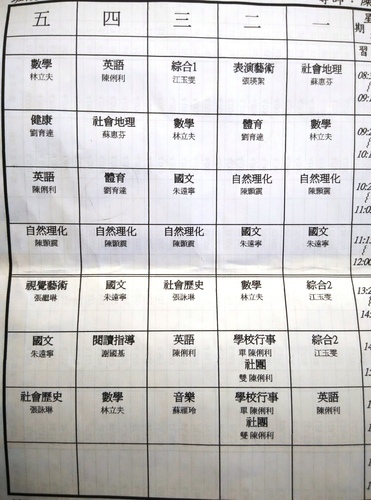 五 四 三 二 一
期
習
數學 英語 綜合1 表演藝術 社會地理
林立夫 陳俐利 江玉雯 張瑛絮 蘇惠芬
健康 社會地理 數學 體育 數學
劉育達 蘇惠芬 林立夫 劉育達 林立夫
英語 體育 國文 自然理化 自然理化
陳俐利 劉育達 朱遠寧 陳顥震 陳顥震
自然理化 自然理化 自然理化 國文 國文
陳顥震 陳顥震 陳顥震 朱遠寧 朱遠寧
12:00
視覺藝術 國文 社會歷史 數學 綜合2
張繼琳 朱遠寧 張詠琳 林立夫 江玉雯
國文 閱讀指導 英語 學校行事 綜合2
朱遠寧 謝國基 陳俐利 單 陳俐利 江玉雯
社團
雙 陳俐利
社會歷史 數學 音樂 學校行事 英語
張詠琳 林立夫 蘇雁玲 單 陳俐利 陳俐利
社團
雙 陳俐利